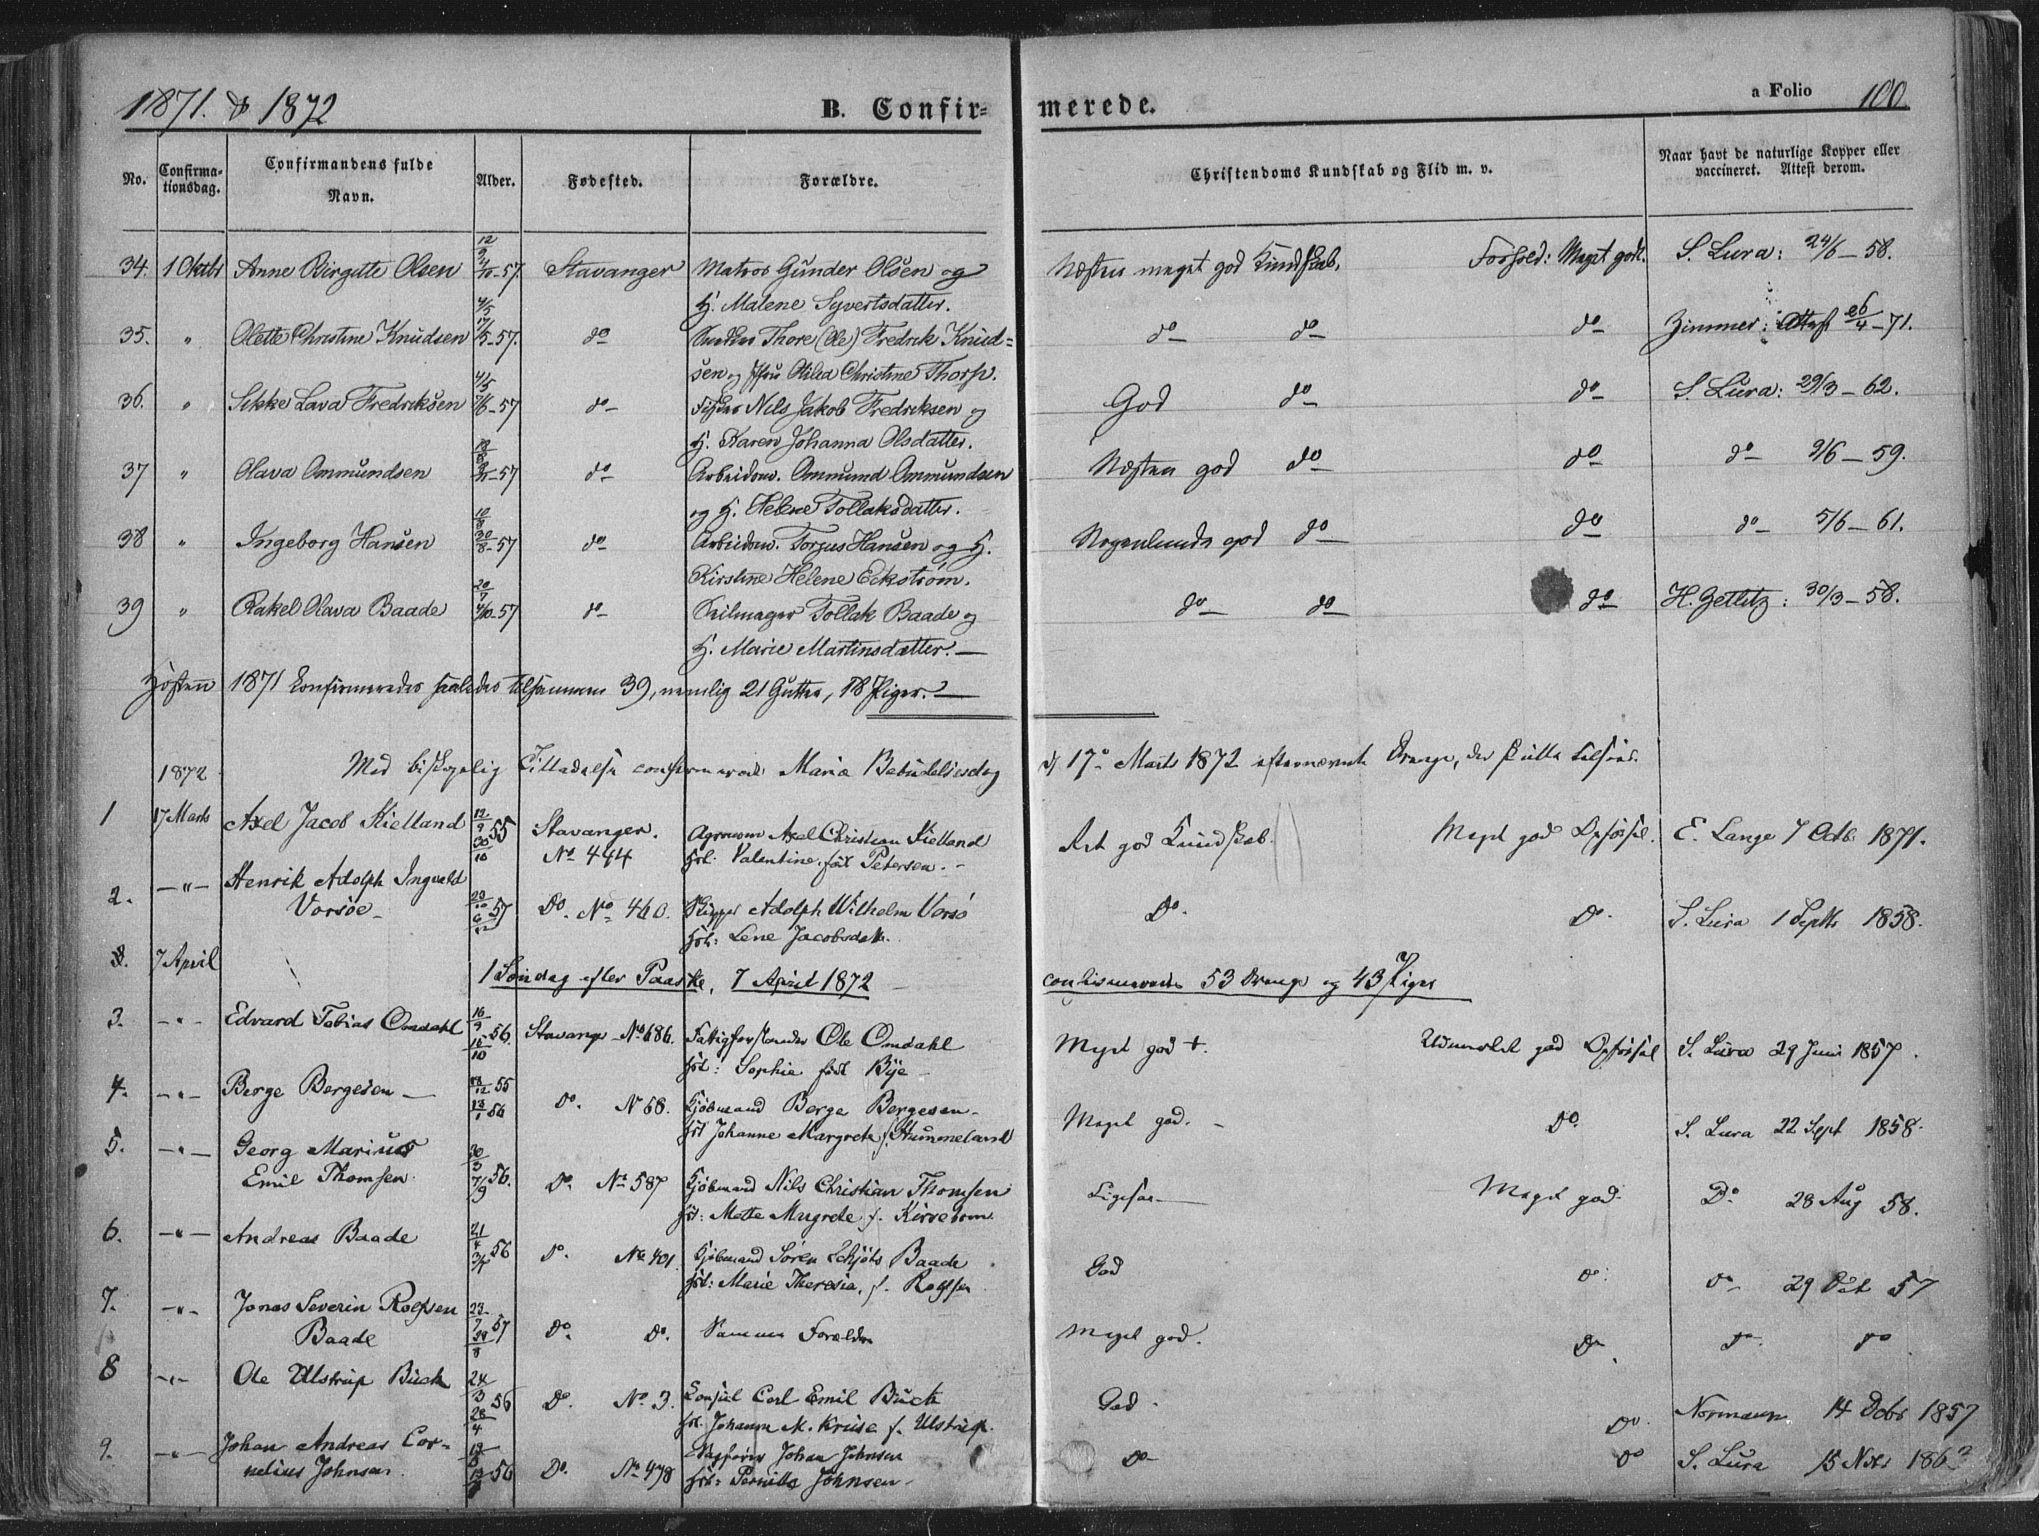 1871. & 1872
B. Confir=
merede.
a Folio 100.
No.
Confirma-
tionsdag.
Confirmandens fulde
Navn.
Alder.
Fødested.
Forældre.
Christendoms Kundskab og Flid m. v.
Naar havt de naturlige Kopper eller
vaccineret. Attest derom.
34. 1 Oktbr Anne Birgitte Olsen 57 Stavanger Matros Gunder Olsen og Næsten meget god Kundskab, Forhold: Meget godt. S. Lura: 24/6 – 58.
H. Malene Syvertsdatter.
35. " Olette Christine Knudsen 57. do Thore (Ole) Fredrik Knud= do do do Zimmer: Attest 26/4 – 71.
sen og Christine
36. " Sikke Lava Fredriksen 57 do Fisker Nils Jakob Fredriksen og God do do S. Lura: 29/3 – 62.
H. Karen Johanna Olsdatter.
37 " Olava Ommundsen 57 do Arbeidsm. Ommund Ommundsen Næsten god do do do 9/6 – 59.
og H. Helene Tollaksdatter.
38 " Ingeborg Hansen 30/8 – 57 do Arbeidsm. Torjus Hansen og H. Nogenlunde god do do do 5/6 – 61.
Kirstine Helene Eckstrøm.
39 " Rakel Olava Baade 57 do Tollak Baade og do do do H. Getlitz: 30/3 – 58.
H. Marie Martinsdatter. —
Høsten 1871 Confirmeredes saaledes tilsammen 39, nemlig 21 Gutter, 18 Piger. —
1872 Med biskopelig Tilladelse confirmered Mariæ Bebudelsesdag d. 17de Marts 1872 efternævnte Drenge, der skulle tilsøes.
1 17 Marts Axel Jacob Kielland 12/9 55 Stavanger. Agronom Axel Christian Kielland Ret god Kundskab. Meget god Opførsel. E. Lange 7 Octb. 1871.
30/10 No 444 Hst: Valentine født Petersen. -
2. — " — Henrik Adolph Ingvald
Vorsøe - 57 Do. No 460. Skipper Adolph Wilhelm Vorsö Do. Do. S. Lura 1 Septb 1858.
Hst: Lene Jacobsdatt.
3. 7 April
1 Søndag efter Paaske, 7 April 1872 confirmerede 53 Drenge og 43 Piger
3. — " — Edvard Tobias Omdahl 16/9 56. Stavanger No 686. Fattigforstander Ole Omdahl Meget god +. Udmerket god Opførsel S. Lura 29 Juni 1857.
15/10 Hst: Sophie født Bye -
4. — " — Berge Bergesen — 55
56 Do. N 68. Kjøbmand Berge Bergesen - Meget god. - Do. S. Lura 22 Sept 1858.
Hst Johanne Margrete f. Hummeland
5. — " — Georg Marius 30/3
Emil Thomsen. 7/9 56. Do. No 587 Kjøbmand Nils Christian Thomsen Ligesaa — Meget god. Do 28 Aug 58.
Hst: Mette Margrete f.
6. — " — Andreas Baade 21/4 56 Do. No 401. Kjøbmand Søren Schjøts Baade God Do. Do 29 Oct 57
Hst: Marie Theresia, f. Rolfsen
7. — " — Jonas Severin Rolfsen 23/7 57
Baade 29/8 Do. Do. Samme Forældre Meget god. Do. Do Do
8 — " — Ole Ulstrup Buck 24/3 56 Do. No 3. Consul Carl Emil Buck God. Do. Normann 14 Dcbr 1857
28/4 Hst. Johanne M. Kruse f. Ulstrup.
9. — " — Johan Andreas Cor-
nelius Johnsen. 56 Do. No 478 Johan Johnsen Do Do S. Lura 15 Novbr
Hst: Pernilla Johnsen -